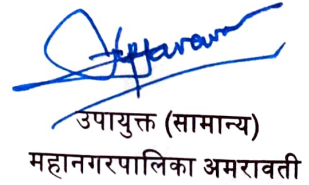 उपायुक्त (सामान्य)
महानगरपालिका अमरावती